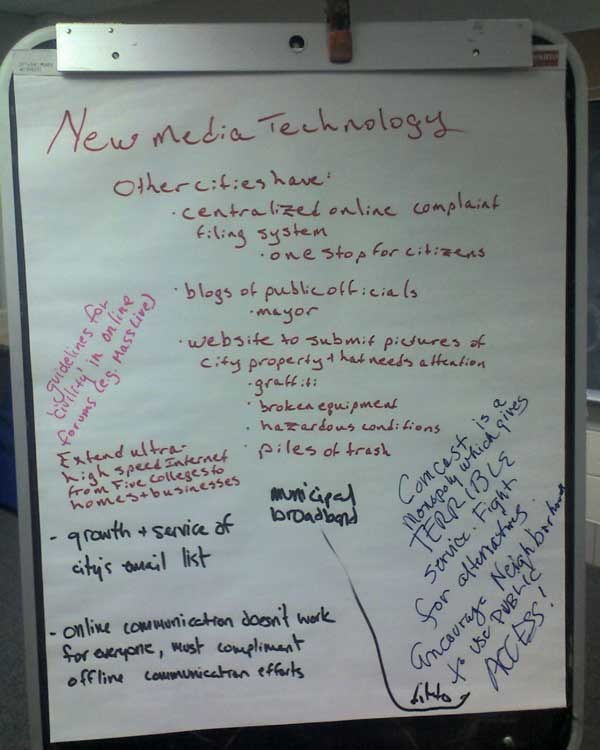 New media Technology
Other cities have:
· centralized online complaint
filing system
· one stop for citizens
· blogs of public officials
· mayor
· website to submit pictures of
city property that needs attention
· graffiti
· broken equipment
· hazardous conditions
· piles of trash
guidelines for
'civility' in online
forums (e.g. MassLive)
Extend ultra-
high speed Internet
from Five Colleges to
homes + businesses
municipal
broadband
- growth + service of
city's email list
- online communication doesn't work
for everyone, must compliment
offline communication efforts
Comcast is a
monopoly which gives
TERRIBLE
service. Fight
for alternatives.
encourage Neighborhood
to use PUBLIC
ACCESS!
ditto